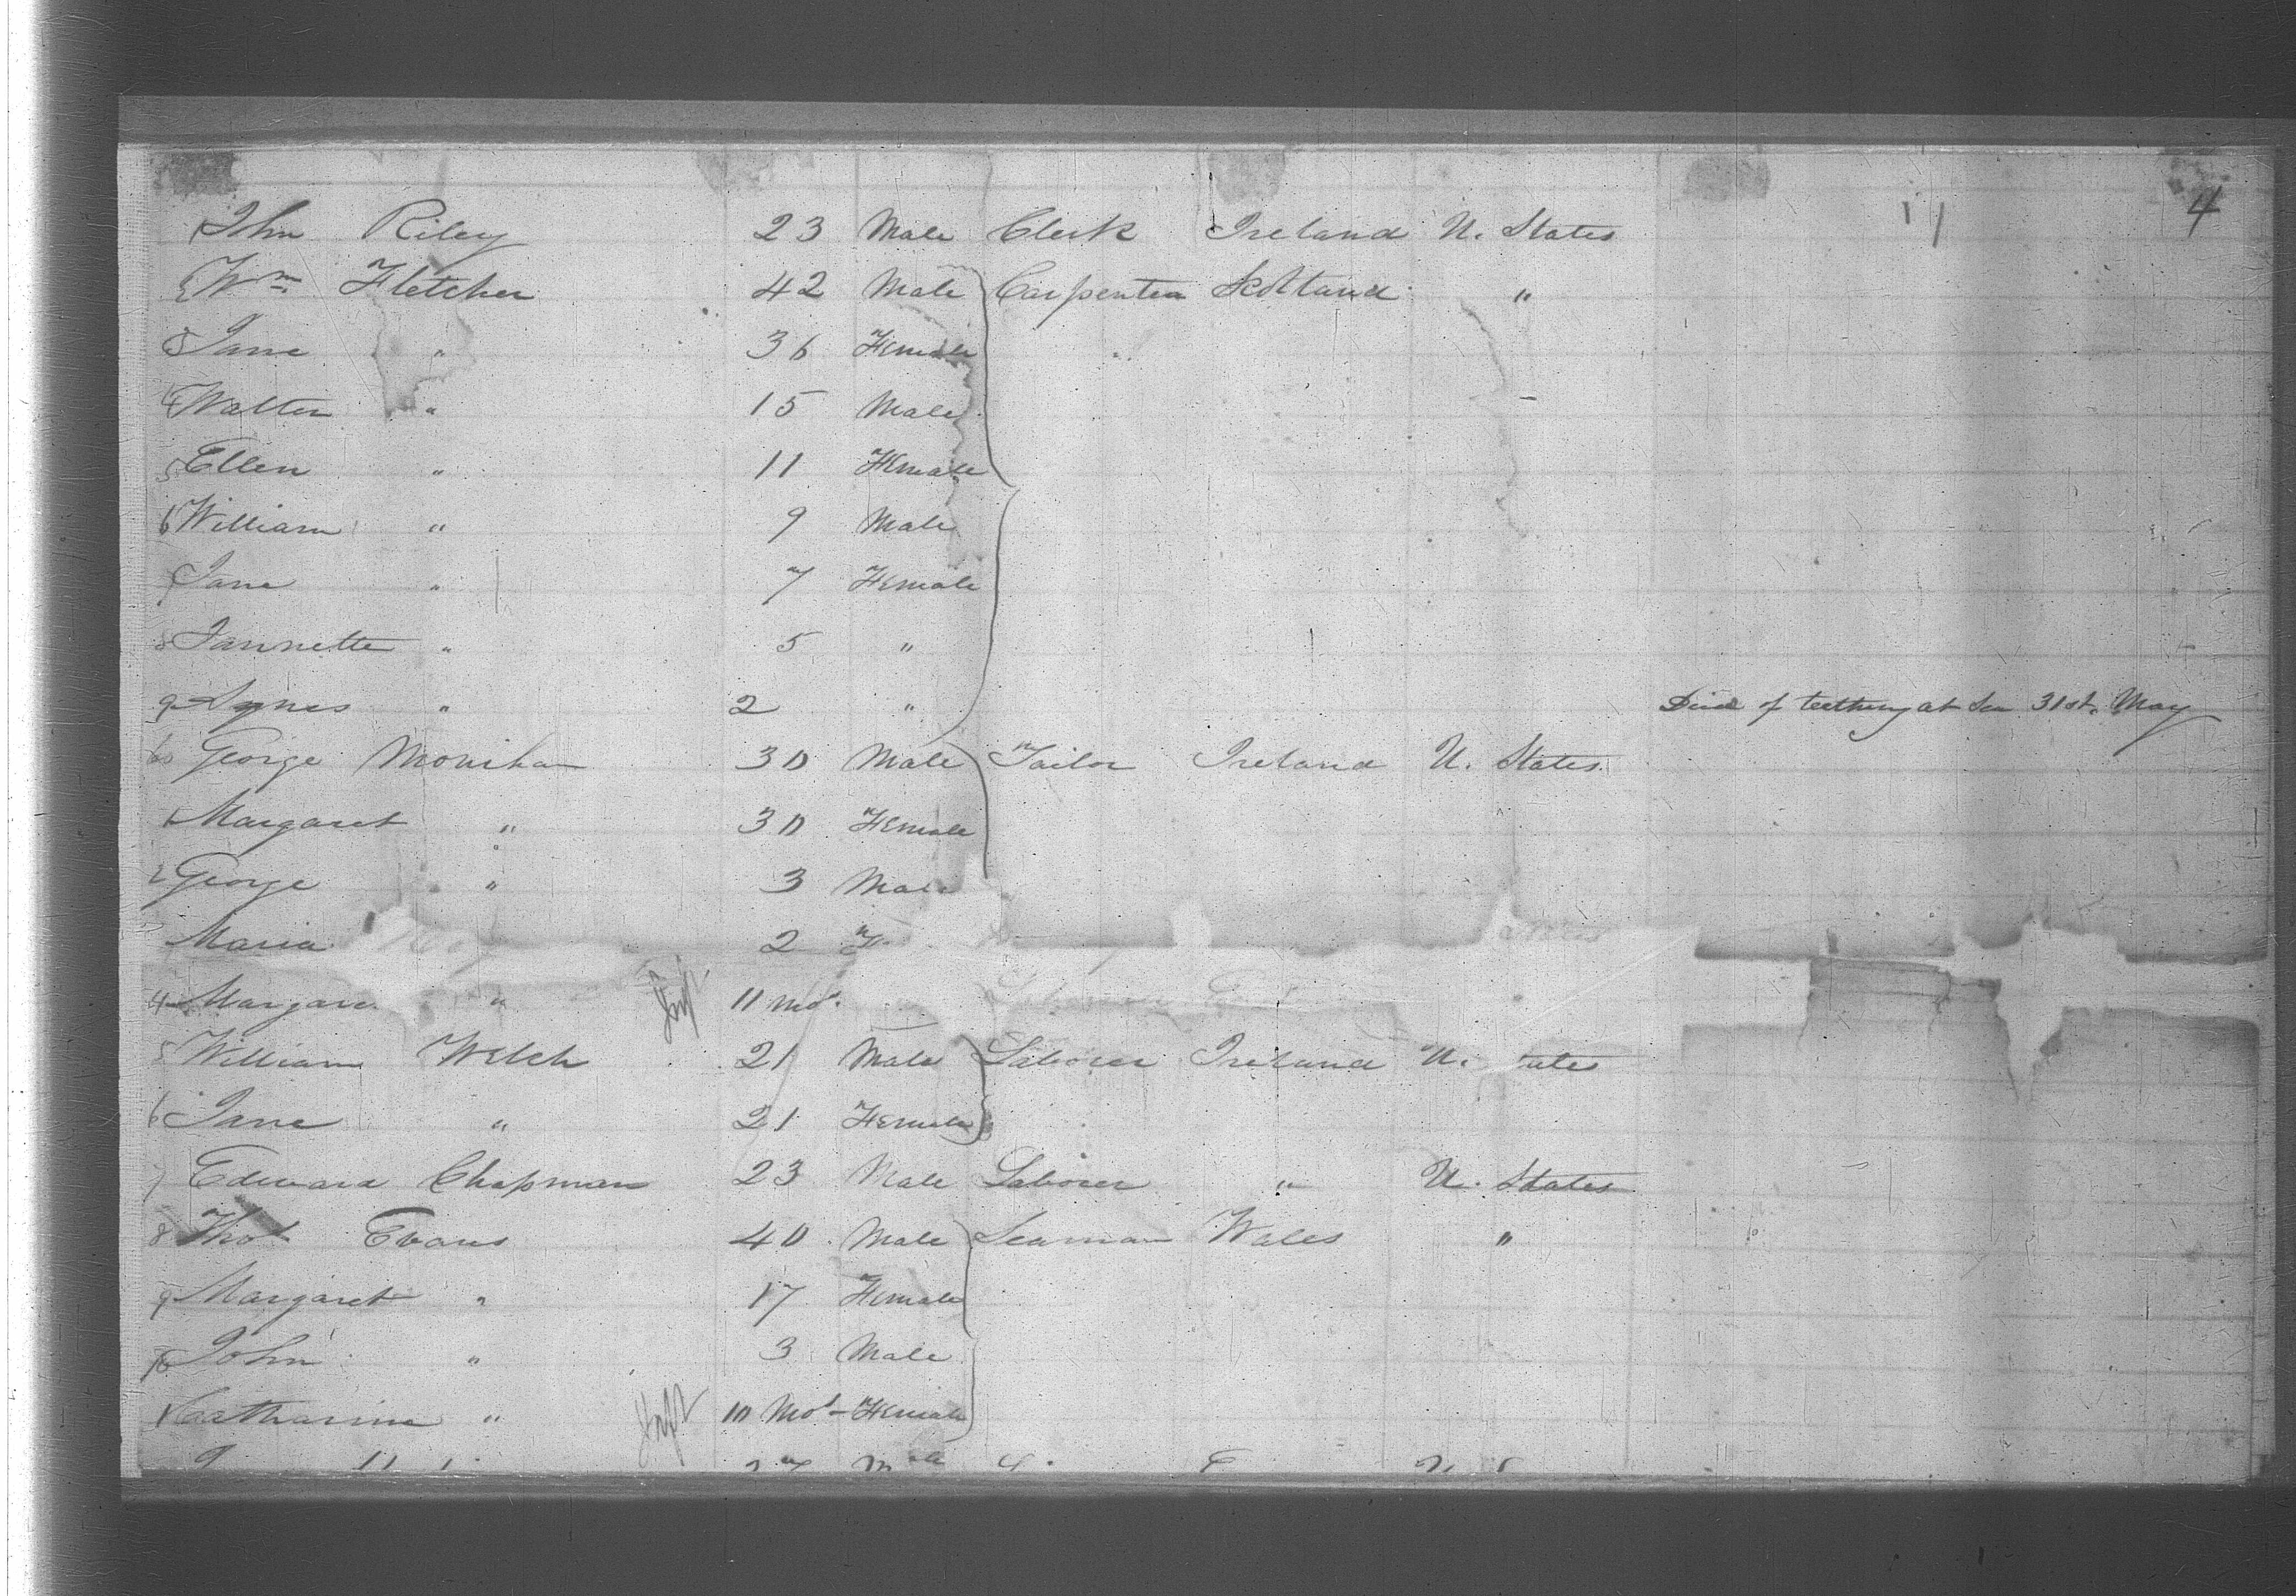 4
1 John Riley 23 Male Clerk Ireland U. States
2 Wm Fletcher 42 Male Carpenter Scotland "
3 Jane " 36 Female
4 Walter " 15 Male
5 Ellen " 11 Female
6 William " 9 Male
7 Jane " 7 Female
8 Jannette " 5 "
9 Agnes " 2 " Died of teething at Sea 31st May
George Monihan 30 Male Tailor Ireland U. States
1 Margaret " 30 Female
2 George " 3 Male
Maria 2 F
4 Margare " Inft 11 Mos.
5 William Welch 21 Male Laborer Ireland U. tates
6 Jane " 21 Female
7 Edward Chapman 23 Male Laborer " U. States
8 Thos Evans 40 Male Seaman Wales "
9 Margaret " 17 Female
John " 3 Male
1 Catharine " Inft 10 Mos - Female